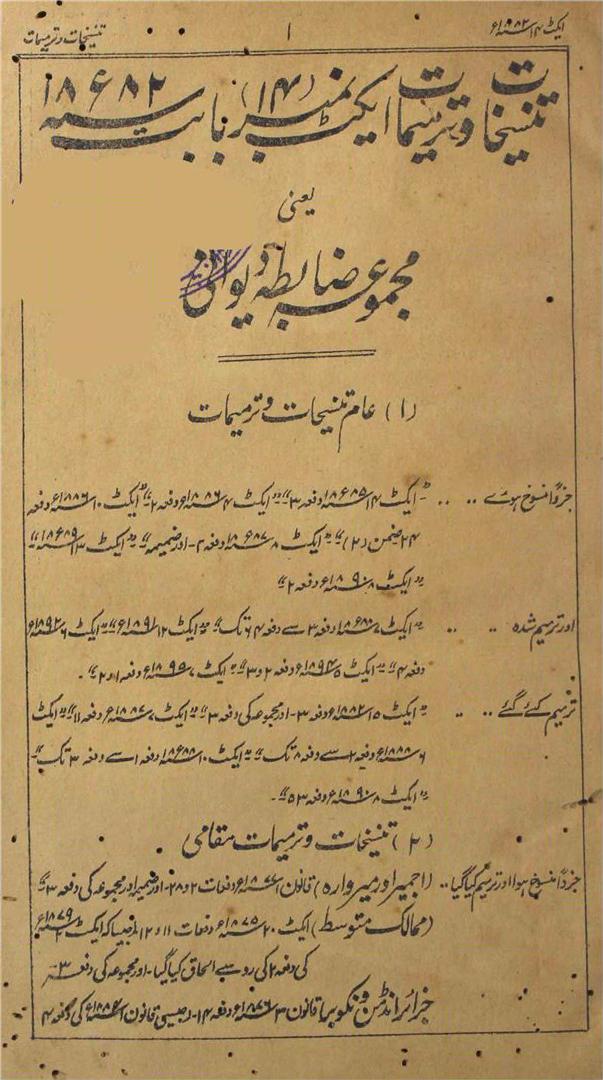 ایکٹ ۱۴ سنہ ۱۸۸۲ء
۱
تنسیخات و ترمیمات
تنسیخات و ترمیمات ایکٹ نمبر (۱۴) بابت سنہ ۱۸۸۲ء
یعنی
مجموعہ ضابطہ دیوانی
(۱) عام تنسیخات و ترمیمات
جزوًا منسوخ ہوئے .. .. ”ایکٹ ۱۴ سنہ ۱۸۸۵ء دفعہ ۳“ ”ایکٹ ۴ سنہ ۱۸۸۶ء دفعہ ۲“ ”ایکٹ ۱۰ سنہ ۱۸۸۶ء دفعہ
۲۴ ضمن (۲)“ ”ایکٹ ۸ سنہ ۱۸۸۷ء دفعہ ۲- اور ضمیمہ“ ”ایکٹ ۱۳ سنہ ۱۸۸۹ء“
”ایکٹ ۸ سنہ ۱۸۹۰ء دفعہ ۲“
اور ترمیم شدہ .. .. ”ایکٹ ۷ سنہ ۱۸۸۸ء دفعہ ۲ سے دفعہ ۶۴ تک“ ”ایکٹ ۱۲ سنہ ۱۸۹۱ء“ ”ایکٹ ۶ سنہ ۱۸۹۲ء
دفعہ ۴“ ”ایکٹ ۵ سنہ ۱۸۹۴ء دفعہ ۲ و ۳“ ”ایکٹ ۷ سنہ ۱۸۹۵ء دفعہ ۱ و ۲“-
ترمیم کئے گئے .. .. ”ایکٹ ۱۵ سنہ ۱۸۸۲ء دفعہ ۳- اور مجموعہ کی دفعہ ۳“ ”ایکٹ ۷ سنہ ۱۸۸۷ء دفعہ ۱۱“ ”ایکٹ
۶ سنہ ۱۸۸۸ء دفعہ ۲ سے دفعہ ۸ تک“ ”ایکٹ ۱۰ سنہ ۱۸۸۸ء دفعہ ۱ سے دفعہ ۳ تک“-
”ایکٹ ۸ سنہ ۱۸۹۰ء دفعہ ۵۳“-
(۲) تنسیخات و ترمیمات مقامی
جزوًا منسوخ ہوا اور ترمیم کیا گیا.. (اجمیر اور میرواڑہ) قانون ۱ سنہ ۱۸۷۷ء دفعات ۲ و ۲۸- اور ضمیمہ اور مجموعہ کی دفعہ ۳“
(ممالک متوسط) ایکٹ ۲۰ سنہ ۱۸۷۵ء دفعات ۱۱ و ۱۲ جیسا کہ ایکٹ ۲ سنہ ۱۸۷۹ء
کی دفعہ ۲ کی رو سے الحاق کیا گیا- اور مجموعہ کی دفعہ ۳-
جزائر انڈمن و نکوبیر قانون ۳ سنہ ۱۸۷۶ء دفعہ ۱۴- ترمیمی قانون ۱ سنہ ۱۸۸۴ء کی دفعہ ۴